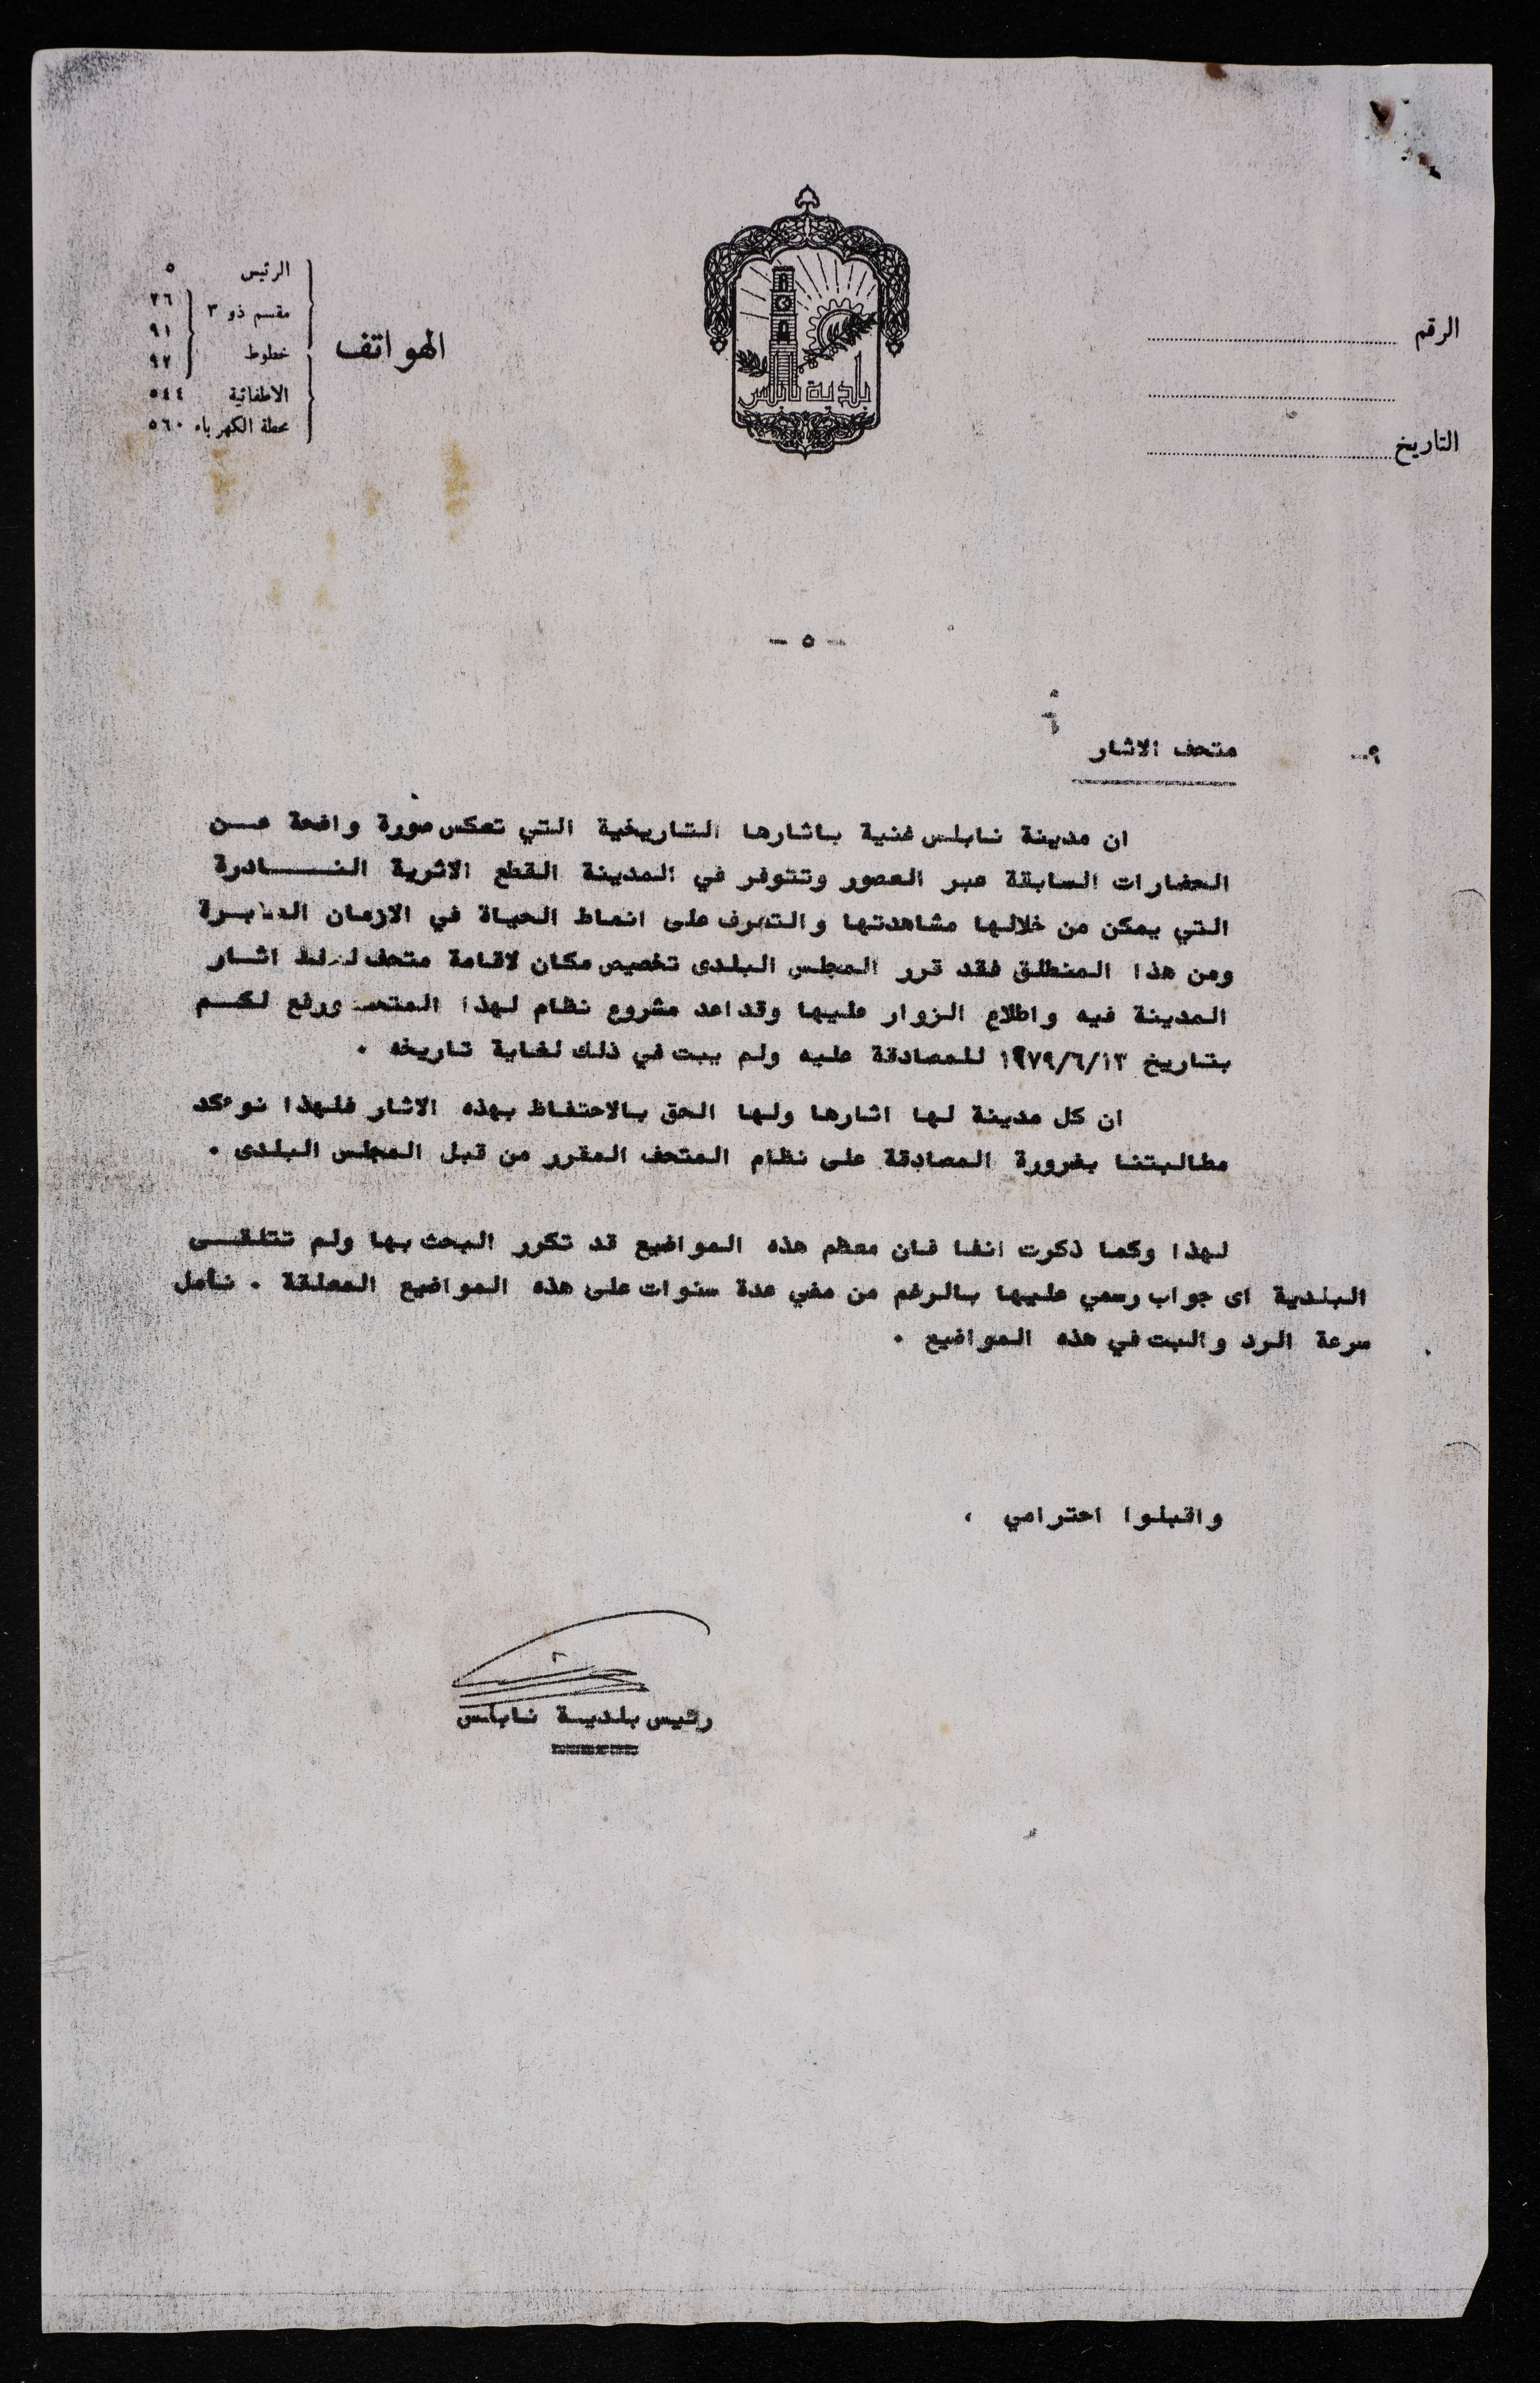 الرقم
التاريخ
بلدية نابلس
الهواتف
الرئيس ٥
مقسم ذو ٣ خطوط ٢٦ ٩١ ٩٢
الاطفائية ٥٤٤
محطة الكهرباء ٥٦٠
- ٥ -
٩- متحف الاثار
ان مدينة نابلس غنية باثارها التاريخية التي تعكس صورة واضحة عـــن
الحضارات السابقة عبر العصور وتتوفر في المدينة القطع الاثرية النـــــــادرة
التي يمكن من خلالها مشاهدتها والتعرف على انماط الحياة في الازمان الغابـرة
ومن هذا المنطلق فقد قرر المجلس البلدى تخصيص مكان لاقامة متحف لحفظ اثــار
المدينة فيه واطلاع الزوار عليها وقد اعد مشروع نظام لهذا المتحف ورفع لكــم
بتاريخ ١٩٧٩/٦/١٣ للمصادقة عليه ولم يبت في ذلك لغاية تاريخه .
ان كل مدينة لها اثارها ولها الحق بالاحتفاظ بهذه الاثار فلهذا نوءكد
مطالبتنا بضرورة المصادقة على نظام المتحف المقرر من قبل المجلس البلدى .
لهذا وكما ذكرت انفا فان معظم هذه المواضيع قد تكرر البحث بها ولم تتلقــى
البلدية اى جواب رسمي عليها بالرغم من مضي عدة سنوات على هذه المواضيع المعلقة . نأمل
سرعة الرد والبت في هذه المواضيع .
واقبلوا احترامي ،
رئيس بلديــة نابلس